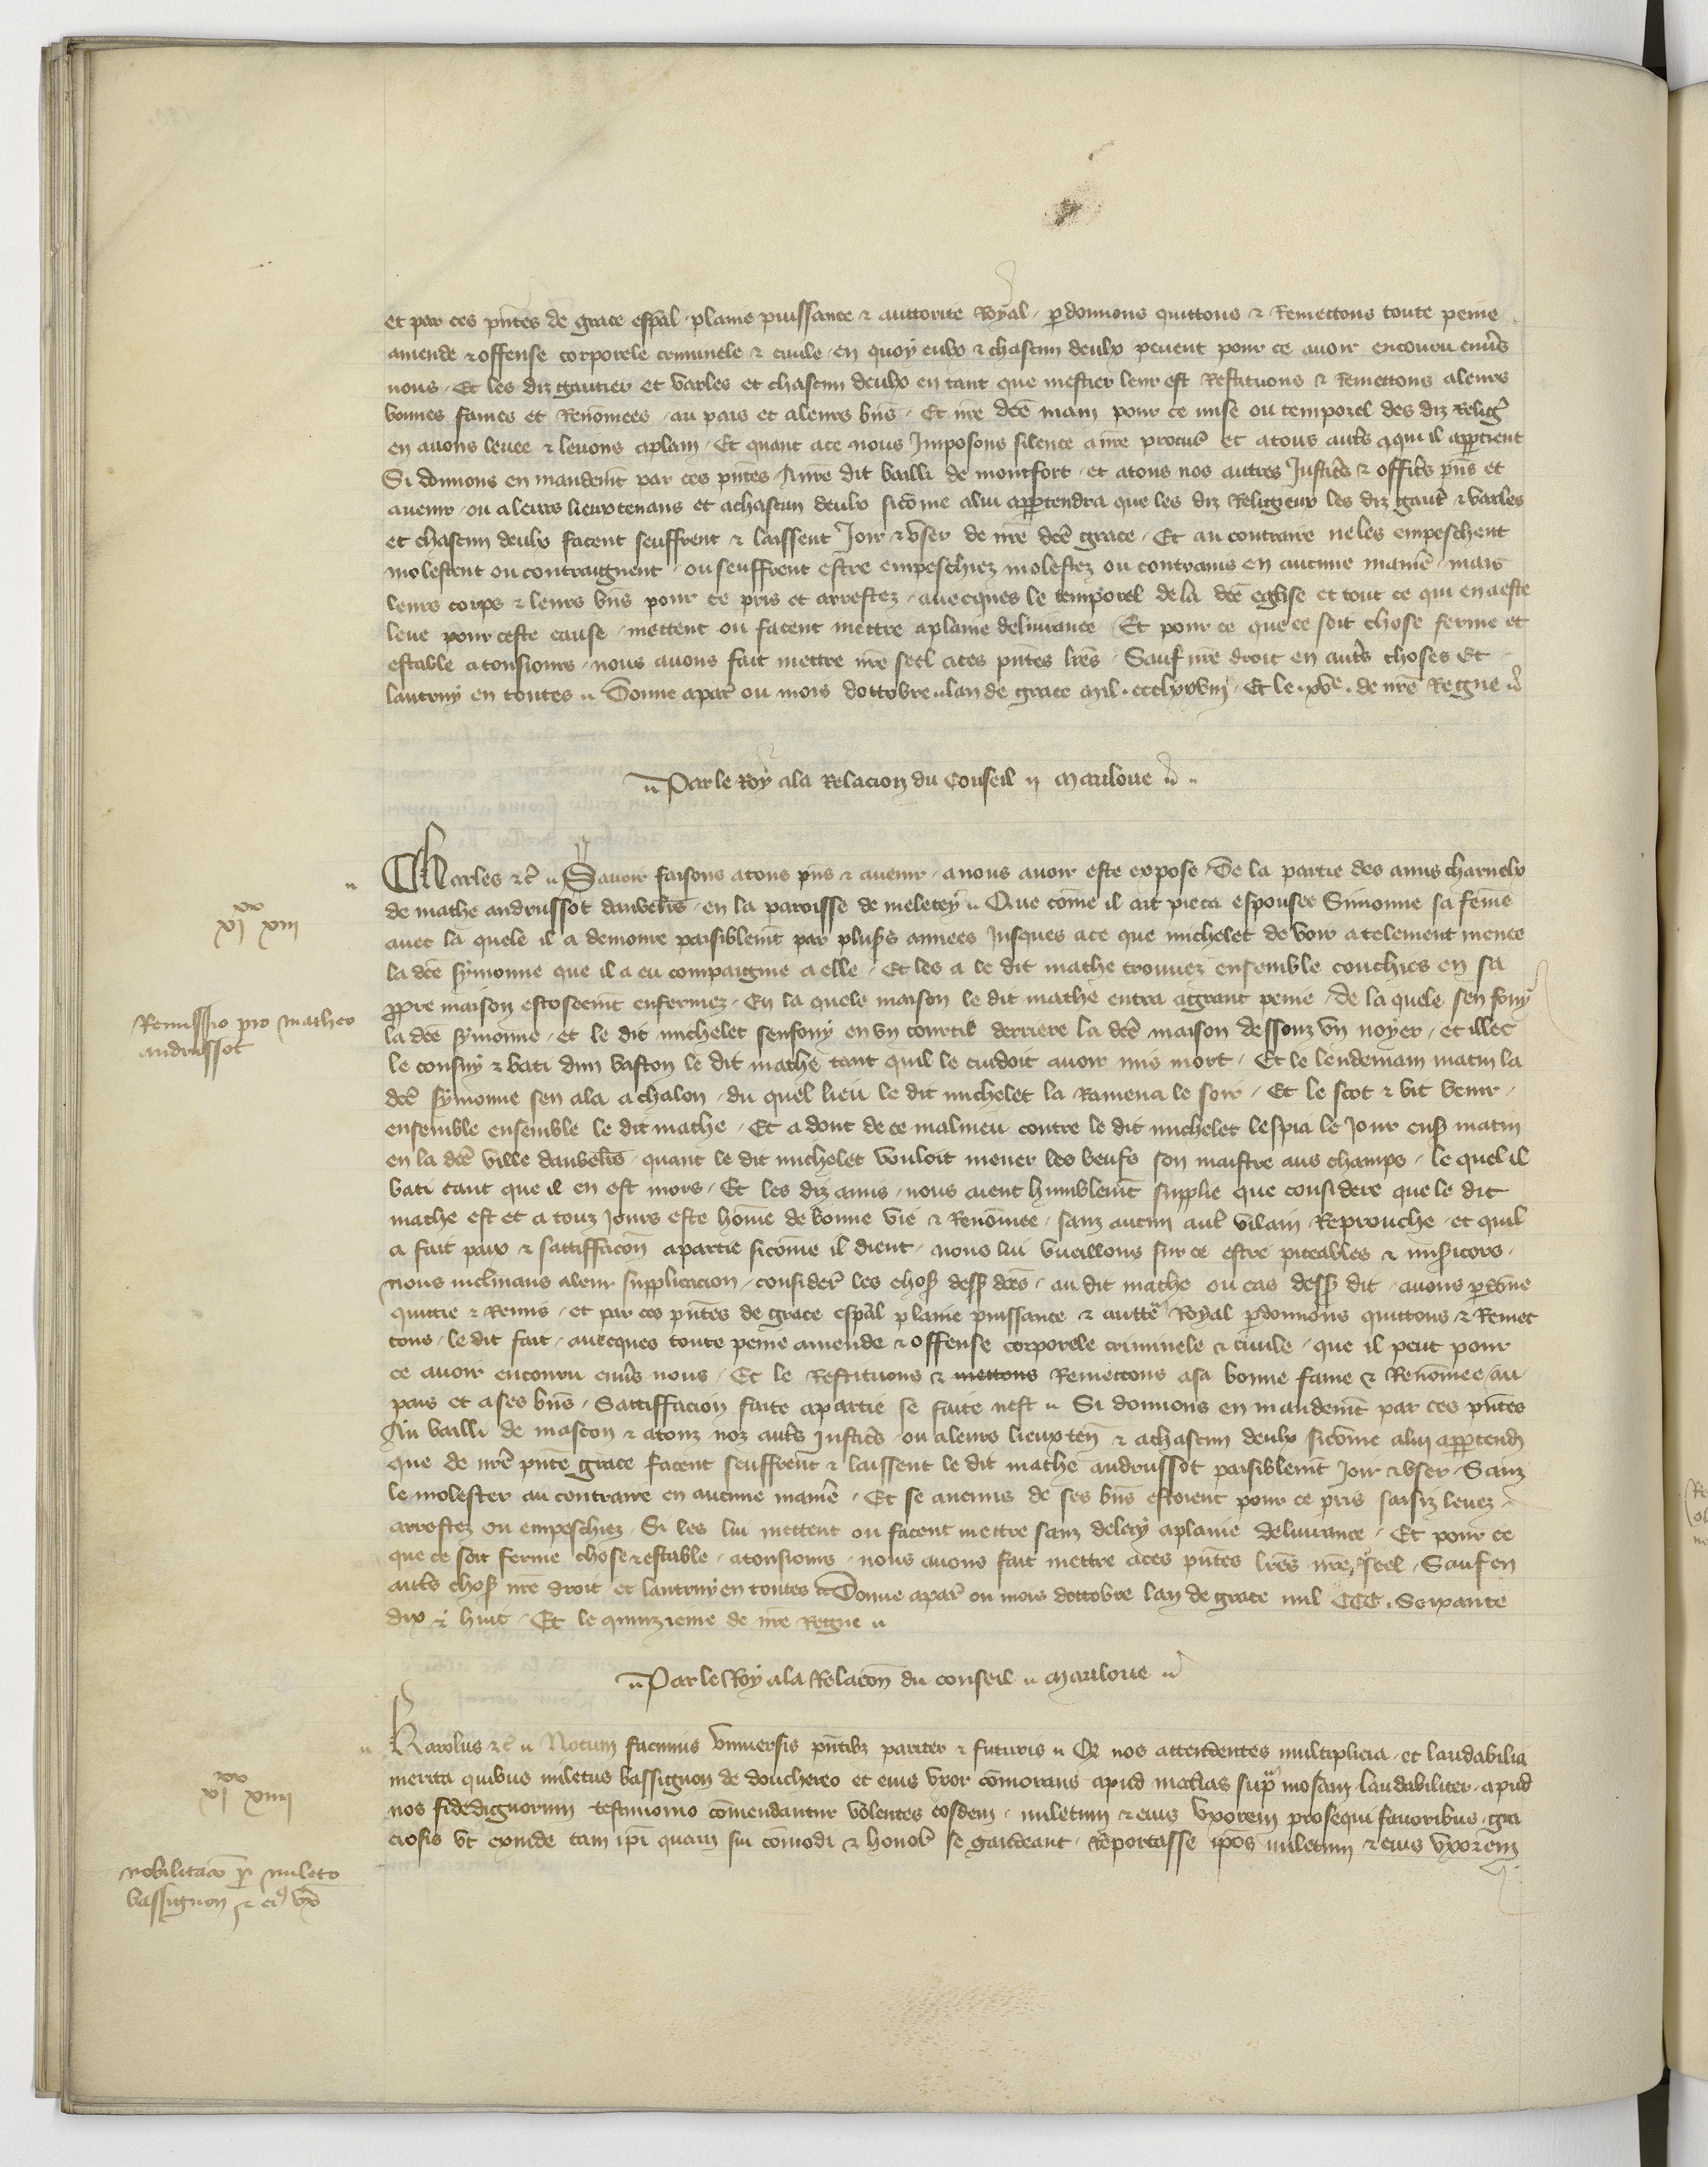 et par ces pñtes de grace esp̃al plaine puissance & auttorite Royal p̱donnons quittons & Remettons toute peine
amende & offense corporele criminele & ciuile en quoy eulx & chascun deulx peuent pour ce auoir encouru enu̾s
nous Et les diz gautier et varles et chascun deulx en tant que mestier leur est Restituons & Remettons a leurs
bonnes fames et Renõmees au pais et a leurs bñs Et nr̃e dc̃e main pour ce mise ou temporel des diz Relig̾
en auons leuee & leuons a plain Et quant a ce nous Imposons silence a nr̃e procur̃ et a tous aut̾s a qui il app̱tient
Si donnons en mandem̃t par ces pñtes A nr̃e dit bailli de montfort et a tous nos autres Justic̾s & offic̾s pñs et
auenir ou a leurs lieuxtenans et a chascun deulx sicõme a lui app̱tendra que les diz Religieux les diz gaut̾ & varles
et chascun deulx facent seuffrent & laissent Joir & vser de nr̃e dc̃e grace Et au contraire ne les empeschent
molestent ou contraignent ou seuffrent estre empeschiez molestez ou contrains en aucune manie̾ mais
leurs corps & leurs bñs pour ce pris et arrestez auecques le temporel de la dc̃e eglise et tout ce qui en a este
leue pour ceste cause mettent ou facent mettre a plaine deliurance Et pour ce que ce soit chose ferme et
estable a tousiours nous auons fait mettre nr̃e seel a ces pñtes lr̃es Sauf nr̃e droit en aut̾s choses Et
lautruy en toutes Donne a par̾ ou mois dottobre lan de grace mil ccclxxviij Et le xve de nr̃e Regne
Par le Roy a la Relacion du Conseil Mauloue
Charles &c̃ Sauoir faisons a tous pñs & auenir a nous auoir este expose De la partie des amis charnelx
de mathe andrussot dauvelis en la paroisse de meletey Que cõme il ait pieca espousee Simonne sa fẽme
auec la quele il a demoure paisiblem̃t par plus̾s annees Jusques a ce que michelet de voir a telement menee
la dc̃e symonne que il a eu compaignie a elle Et les a le dit mathe trouuez ensemble couchies en sa
pp̱re maison estoseem̃t enfermez En la quele maison le dit mathe entra a grant peine De la quele sen fouy
la dc̃e symonne et le dit michelet senfouy en vn courtil derriere la dc̃e maison dessouz vn noyer et illec
le consuy & bati dun baston le dit mathe tant quil le cuidoit auoir mis mort Et le lendemain matin la
dc̃e symonne sen ala a chalon du quel lieu le dit michelet la Ramena le soir Et le scot & vit venir
ensemble ensemble le dit mathe Et a dont de ce malmeu contre le dit michelet lespia le Jour ens̾ matin
en la dc̃e ville dauvelis quant le dit michelet vouloit mener les beufs son maistre aus champs le quel il
bati tant que il en est mors Et les diz amis nous aient humblem̃t supplie que considere que le dit
mathe est et a touz Jours este hõme de bonne vie & Renõmee sanz aucun aut̾ vilain Reprouche et quil
a fait paix & sattiffacõn a partie sicõme il dient nous lui vueillons sur ce estre piteables & mis̾icors
Nous inclinans a leur supplicacion consider̾ les chos̾ dess̾ dc̃es au dit mathe ou cas dess̾ dit auons p̱dõne
quittie & Remis et par ces pñtes de grace esp̃al plaine puissance & autte Royal p̱donnons quittons & Remet
tons le dit fait auecques toute peine amende & offense corporele criminele & ciuile que il peut pour
ce auoir encouru enu̾s nous Et le Restituons & mettons Remettons a sa bonne fame & Renõmee au
pais et a ses bñs Sattiffacion faite a partie se faite nest Si donnons en mandem̃t par ces pñtes
Au bailli de mascon & a touz noz aut̾s Justic̾s ou a leurs lieuxteñ & a chascun deulx sicõme a lui app̱tend̾
que de nr̃e pñte grace facent seuffreñt & laissent le dit mathe andrussot paisiblem̃t Joir & vser Sanz
le molester au contraire en aucune manie̾ Et se aucuns de ses bñs estoient pour ce pris saisiz leuez
arrestez ou empeschiez Si les lui mettent ou facent mettre sanz delay a plaine deliurance Et pour ce
que ce soit ferme chose & estable a tousiours nous auons fait mettre a ces pñtes lr̃es nr̃e seel Sauf en
aut̾s chos̾ nr̃e droit et lautruy en toutes Donne a par̾ ou mois dottobre lan de grace mil CCC Soixante
dix & huit Et le quinzieme de nr̃e Regne
Par le Roy a la Relacõn du conseil Mauloue
Karolus &c̃ Notum facimus Vniuersis pñtibz pariter & futuris Q̾ nos attendentes multiplicia et laudabilia
merita quibus miletus bassignon de douchereo et eius vxor cõmorans apud maclas sup̃ mosam laudabiliter apud
nos fidedignorum testimonio cõmendantur volentes eosdem miletum & eius vxorem prosequi fauoribus gra
ciosis vt exinde tam ip̃i quam sui cõmodi & honor̾ se gaudeant Reportasse ip̃os miletum & eius vxorem
xx
xj xiij
Remissio pro matheo
andrussot
xx
xj xiiij
Nobilitac̃o p̱ mileto
bassignon & ei9 vx̾